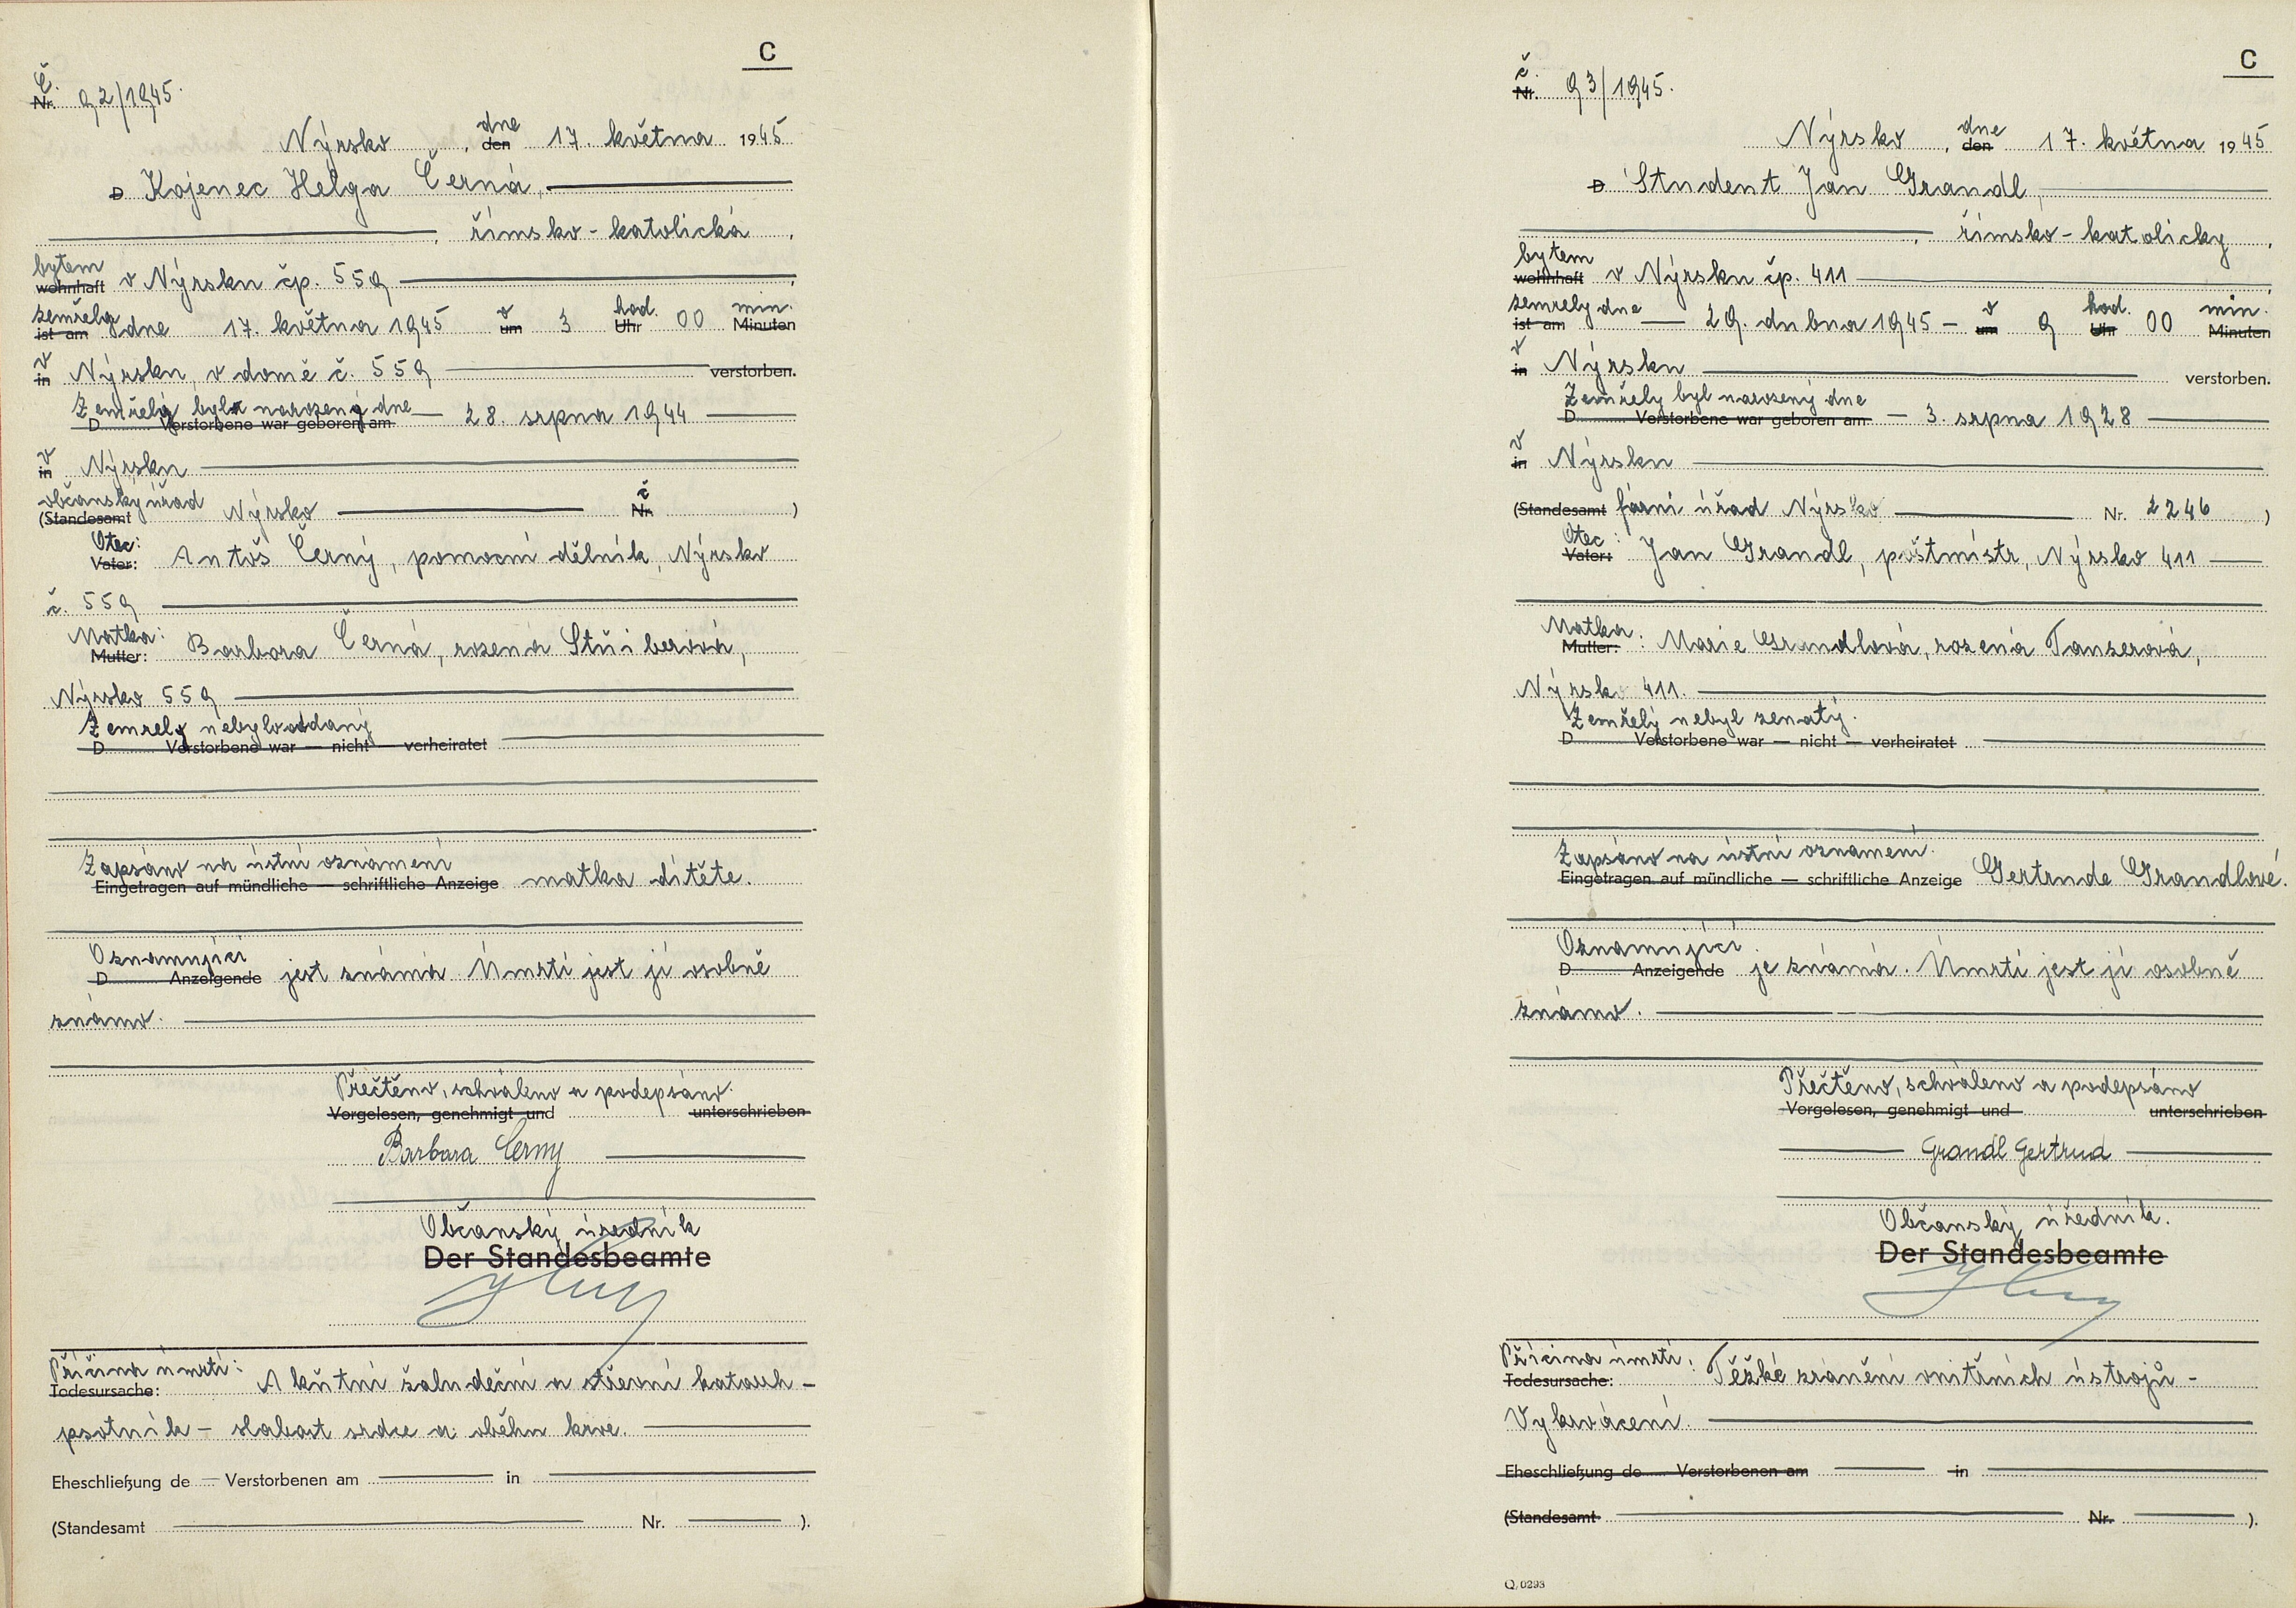 C
č.
Nr. 92/1945.
Nýrsko, dne den 17. května 1945
D Kojenec Helga Černá,
římsko-katolická,
bytem
wohnhaft v Nýrsku čp. 559
zemřela dne v hod. min.
ist am 17. května 1945 um 3 Uhr 00 Minuten
v
in Nýrsku, v domě č. 559 verstorben.
Zemřelá byla narozena dne
D Verstorbene war geboren am 28. srpna 1944
v
in Nýrsku
občanský úřad č
(Standesamt Nýrsko Nr. )
Otec:
Vater: Antoš Černý, pomocní dělník, Nýrsko
č. 559
Matka:
Mutter: Barbora Černá, rozená Stüiberová,
Nýrsko 559
Zemřely nebyl oddaný
D Verstorbene war — nicht — verheiratet
Zapsáno na ústní oznámení
Eingetragen auf mündliche — schriftliche Anzeige matka dítěte.
Oznamující
D Anzeigende jest známá. Úmrtí jest jí osobně
známo.
Přečteno, schváleno a podepsáno.
Vorgelesen, genehmigt und unterschrieben
Barbara Cerny
Občanský úředník
Der Standesbeamte
Příčina úmrtí:
Todesursache: Akůtní žaludeční a střevní katarrh -
psotník - slabost srdce a oběhu krve.
Eheschließung de Verstorbenen am in
(Standesamt Nr. ).
C
č.
Nr. 93/1945.
Nýrsko, dne den 17. května 1945
D Student Jan Grandl,
římsko-katolický,
bytem
wohnhaft v Nýrsku čp. 411
zemřelý dne v hod. min.
ist am 29. dubna 1945 um 9 Uhr 00 Minuten
v
in Nýrsku verstorben.
Zemřelý byl narozený dne
D Verstorbene war geboren am 3. srpna 1928
v
in Nýrsku
(Standesamt farní úřad Nýrsko Nr. 2246 )
Otec:
Vater: Jan Grandl, poštmistr, Nýrsko 411
Matka:
Mutter: Marie Grandlová, rozená Tanzerová,
Nýrsko 411.
Zemřelý nebyl ženatý.
D Verstorbene war — nicht — verheiratet
Zapsáno na ústní oznámení.
Eingetragen auf mündliche — schriftliche Anzeige Gertrude Grandlové.
Oznamující
D Anzeigende je známá. Úmrtí jest jí osobně
známo.
Přečteno, schváleno a podepsáno
Vorgelesen, genehmigt und unterschrieben
Grandl Gertrud
Občanský úředník.
Der Standesbeamte
Příčina úmrtí:
Todesursache: Těžké zránění vnitřních ústrojů -
Vykrvácení.
Eheschließung de Verstorbenen am in
(Standesamt Nr. ).
Q 0293